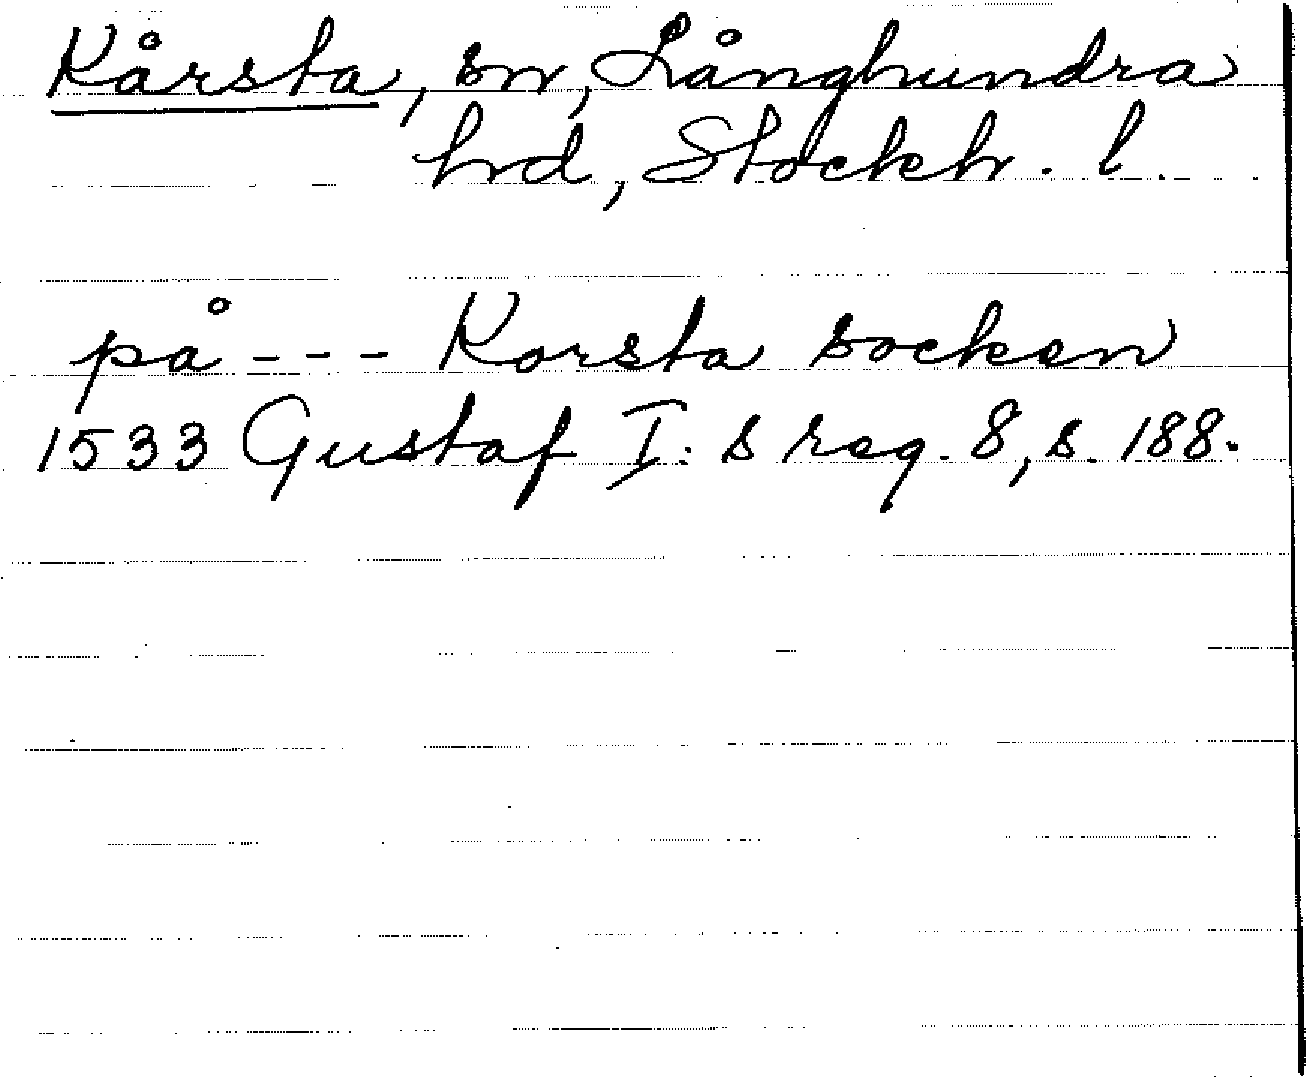 Kårsta, sn, Långhundra
hd, Stockh. l.
på --- Korsta socken
1533 Gustaf I: s reg. 8, s. 188.